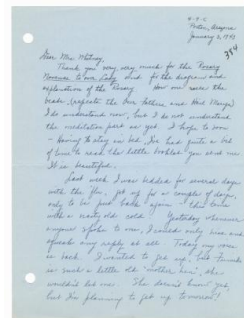 4-4-C
Poston, Arizona
January 2, 1943
384
Dear Mrs. Whitney,
Thank you very, very much for the Rosary
Novenas to Our Lady and for the diagram and
explanation of the Rosary. How one uses the
beads, (repeats the Our Fathers and Hail Marys)
I do understand now, but I do not understand
the meditation part as yet. I hope to soon
- Having to stay in bed, I've had quite a bit
of time to read the little booklet you sent me.
It is beautiful.
Last week I was bedded for several days
with the flu, got up for a couple of days,
only to be put back again - this time
with a nasty old cold. Yesterday whenever
anyone spoke to me, I could only hear and
speak any reply at all. Today my voice
is back. I wanted to get up, but
is such a little old "mother hen", she
wouldn't let me. She doesn't know yet,
but I'm planning to get up tomorrow!